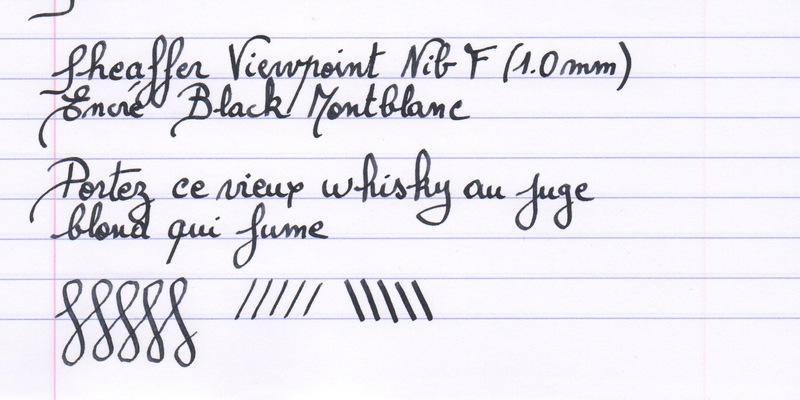 Sheaffer Viewpoint Nib F (1.0mm)
Encre Black Montblanc
Portez ce vieux whisky au juge
blond qui fume